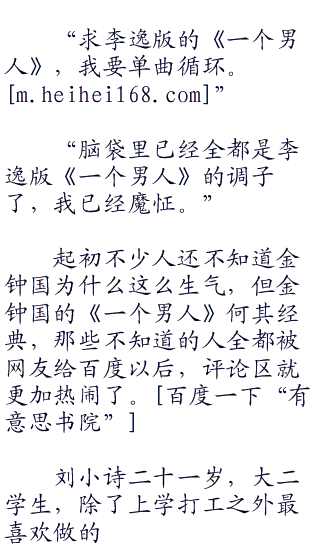 “求李逸版的《一个男
人》，我要单曲循环。
[m.heihei168.com]”
“脑袋里已经全都是李
逸版《一个男人》的调子
了，我已经魔怔。”
起初不少人还不知道金
钟国为什么这么生气，但金
钟国的《一个男人》何其经
典，那些不知道的人全都被
网友给百度以后，评论区就
更加热闹了。[百度一下“有
意思书院”]
刘小诗二十一岁，大二
学生，除了上学打工之外最
喜欢做的